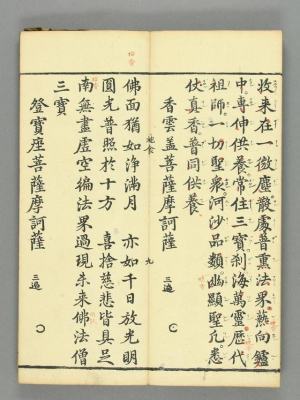 收来在一微塵散處普熏法界爇向鑪
中專伸供養常住三寶刹海萬靈歷代
祖師一切聖眾河沙品類幽顯聖凡悉
仗真香普同供養
香雲盖菩薩摩訶薩 三遍
施食 九
佛面猶如淨滿月 亦如千日放光明
圓光普照於十方 喜捨慈悲皆具足
南無盡虛空徧法界過現未來佛法僧
三寶
登寶座菩薩摩訶薩 三遍